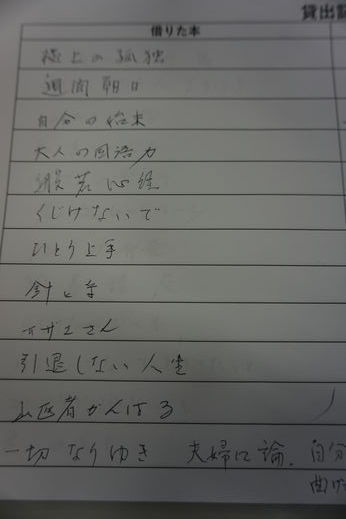 貸出記
借りた本
極上の孤独
週間朝日
自分の始末
大人の国語力
般若心経
くじけないで
ひとり上手
針と糸
サザエさん
引退しない人生
山医者がんばる
一切なりゆき 夫婦口論. 自分
曲げ